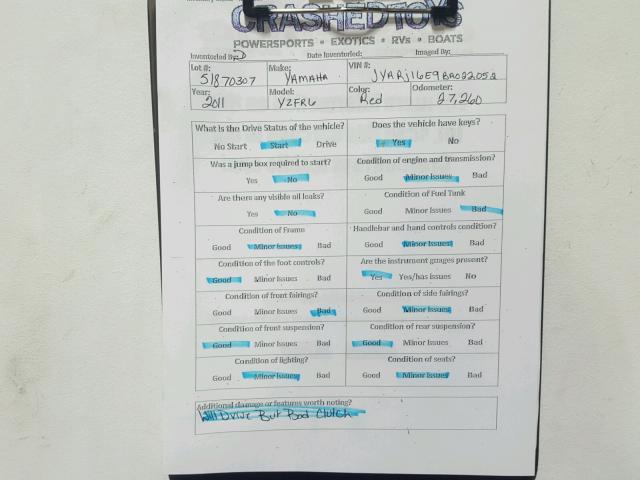 CRASHEDTOYS
POWERSPORTS • EXOTICS • RVs • BOATS
Inventoried By: Date Inventoried: Imaged By:
Lot #: Make: VIN #:
51870307 YAMAHA JYARJ16E9BA022052
Year: Model: Color: Odometer:
2011 YZFR6 Red 27,260
What is the Drive Status of the vehicle? Does the vehicle have keys?
No Start Start Drive Yes No
Was a jump box required to start? Condition of engine and transmission?
Yes No Good Minor Issues Bad
Are there any visible oil leaks? Condition of Fuel Tank
Yes No Good Minor Issues Bad
Condition of Frame Handlebar and hand controls condition?
Good Minor Issues Bad Good Minor Issues Bad
Condition of the foot controls? Are the instrument guages present?
Good Minor Issues Bad Yes Yes/has issues No
Condition of front fairings? Condition of side fairings?
Good Minor Issues Bad Good Minor Issues Bad
Condition of front suspension? Condition of rear suspension?
Good Minor Issues Bad Good Minor Issues Bad
Condition of lighting? Condition of seats?
Good Minor Issues Bad Good Minor Issues Bad
Additional damage or features worth noting?
Will Drive But Bad Clutch